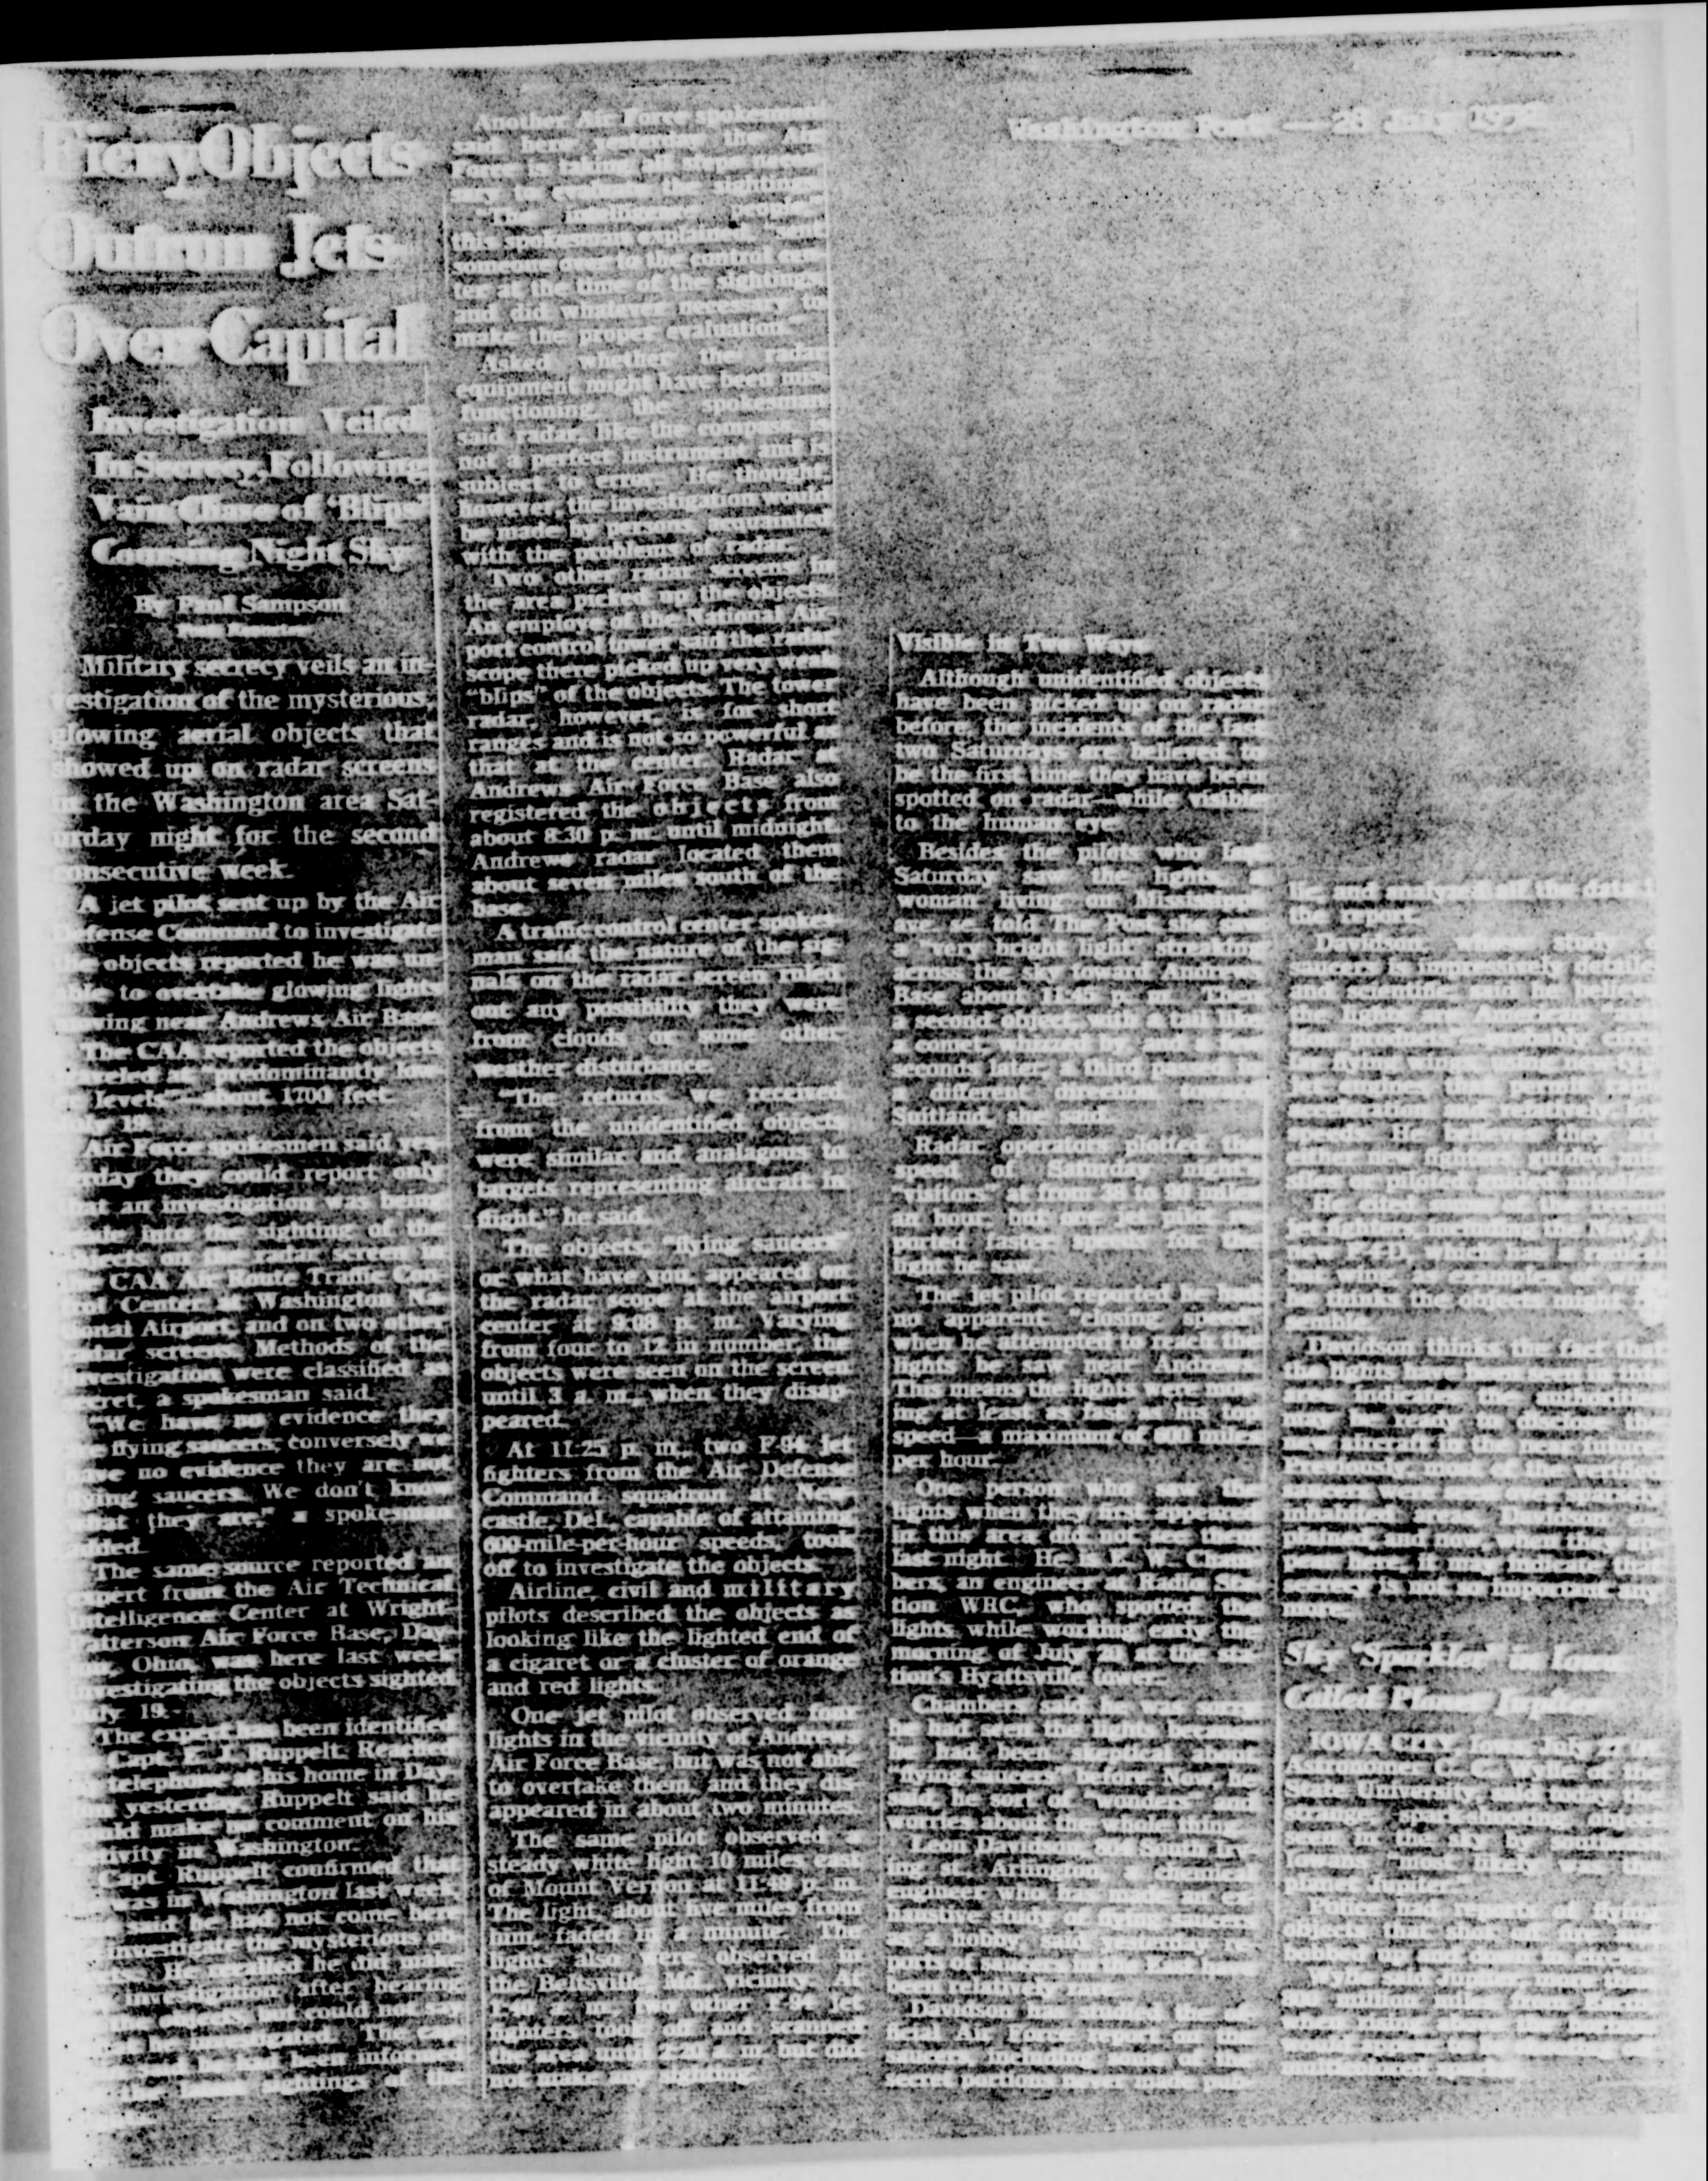 Washington Post — 28 July 1952
Fiery Objects
Outrun Jets
Over Capital
Investigation Veiled
In Secrecy Following
Vain Chase of 'Blips'
Night Sky
By Paul Sampson
Post Reporter
Military secrecy veils an in-
vestigation of the mysterious,
glowing aerial objects that
showed up on radar screens
in the Washington area Sat-
urday night for the second
consecutive week.
A jet pilot sent up by the Air
Defense Command to investigate
the objects reported he was un-
able to overtake glowing lights
moving near Andrews Air Base.
The CAA reported the objects
traveled at "predominantly low
levels"—about 1700 feet.
July 19.
Air Force spokesmen said yes-
terday they could report only
that an investigation was being
made into the sighting of the
objects on the radar screen in
the CAA Air Route Traffic Con-
trol Center at Washington Na-
tional Airport, and on two other
radar screens. Methods of the
investigation were classified as
secret, a spokesman said.
"We have no evidence they
are flying saucers; conversely we
have no evidence they are not
flying saucers. We don't know
what they are," a spokesman
added.
The same source reported an
expert from the Air Technical
Intelligence Center at Wright-
Patterson Air Force Base, Day-
ton, Ohio, was here last week
investigating the objects sighted
July 19.
The expert has been identified
Capt. E. J. Ruppelt. Reached
telephone at his home in Day-
ton yesterday, Ruppelt said he
could make no comment on his
activity in Washington.
Capt. Ruppelt confirmed that
was in Washington last week
said he had not come here
investigate the mysterious ob-
He recalled he did make
investigation after hearing
could not say
Another Air Force spokesman
said here yesterday the Air
Force is taking all steps neces-
sary to evaluate the sightings.
"The intelligence people,"
this spokesman explained, "sent
someone over to the control cen-
ter at the time of the sightings
and did whatever necessary to
make the proper evaluation."
Asked whether the radar
equipment might have been mis-
functioning, the spokesman
said radar, like the compass is
not a perfect instrument and is
subject to error. He thought,
however, the investigation would
be made by persons acquainted
with the problems of radar.
Two other radar screens in
the area picked up the objects.
An employe of the National Air-
port control tower said the radar
scope there picked up very weak
"blips" of the objects. The tower
radar, however, is for short
ranges and is not so powerful as
that at the center. Radar at
Andrews Air Force Base also
registered the objects from
about 8:30 p. m. until midnight.
Andrews radar located them
about seven miles south of the
base.
A traffic control center spokes-
man said the nature of the sig-
nals on the radar screen ruled
out any possibility they were
from clouds or some other
weather disturbance.
"The returns we received
from the unidentified objects
were similar and analagous to
targets representing aircraft in
flight," he said.
The objects, "flying saucers"
or what have you, appeared on
the radar scope at the airport
center at 9:08 p. m. Varying
from four to 12 in number, the
objects were seen on the screen
until 3 a. m., when they disap-
peared.
At 11:25 p. m., two F-94 jet
fighters from the Air Defense
Command squadron at New-
castle, Del., capable of attaining
600-mile-per-hour speeds, took
off to investigate the objects.
Airline, civil and military
pilots described the objects as
looking like the lighted end of
a cigaret or a cluster of orange
and red lights.
One jet pilot observed four
lights in the vicinity of Andrews
Air Force Base, but was not able
to overtake them, and they dis-
appeared in about two minutes.
The same pilot observed a
steady white light 10 miles east
of Mount Vernon at 11:49 p. m.
The light, about five miles from
him, faded in a minute. The
lights also were observed in
the Beltsville, Md., vicinity. At
1:40 a. m. two other F-94 jet
fighters took off and scanned
the area until 2:20 a. m. but did
not make any sighting.
Visible in Two Ways
Although unidentified objects
have been picked up on radar
before, the incidents of the last
two Saturdays are believed to
be the first time they have been
spotted on radar—while visible
to the human eye.
Besides the pilots who last
Saturday saw the lights, a
woman living on Mississippi
ave. se. told The Post she saw
a "very bright light" streaking
across the sky toward Andrews
Base about 11:45 p. m. Then
a second object, with a tail like
a comet, whizzed by, and a few
seconds later, a third passed in
a different direction toward
Suitland, she said.
Radar operators plotted the
speed of Saturday night's
"visitors" at from 38 to 90 miles
an hour, but one jet pilot re-
ported faster speeds for the
light he saw.
The jet pilot reported he had
no apparent "closing speed"
when he attempted to reach the
lights he saw near Andrews.
This means the lights were mov-
ing at least as fast as his top
speed—a maximum of 600 miles
per hour.
One person who saw the
lights when they first appeared
in this area did not see them
last night. He is E. W. Cham-
bers, an engineer at Radio Sta-
tion WRC, who spotted the
lights while working early the
morning of July 20 at the sta-
tion's Hyattsville tower.
Chambers said he was sorry
he had seen the lights because
he had been skeptical about
"flying saucers" before. Now, he
said, he sort of "wonders" and
worries about the whole thing.
Leon Davidson, 804 South Irv-
ing st., Arlington, a chemical
engineer who has made an ex-
haustive study of flying saucers
as a hobby, said yesterday re-
ports of saucers in the East have
been relatively rare.
Davidson has studied the of-
ficial Air Force report on the
saucers, including some of the
secret portions never made pub-
lic, and analyzed all the data in
the report.
Davidson, whose study of
saucers is impressively detailed
and scientific, said he believes
the lights are American
He cited
new F-4-D, which has a radical
bat-wing, as examples of what
he thinks the objects might re-
semble.
Davidson thinks the fact that
the lights have been seen in this
area indicates the authorities
may be ready to disclose the
new aircraft in the near future.
Previously, most of the verified
inhabited areas, Davidson ex-
plained, and now, when they ap-
pear here, it may indicate that
secrecy is not so important any
more.
Sky 'Sparkler' in Iowa
Called Planet Jupiter
IOWA CITY, Iowa, July 27
Astronomer C. C. Wylie of the
State University, said today the
strange, sparkling object
seen in the sky by southern
Iowans "most likely" was the
planet Jupiter.
Police had reports of flying